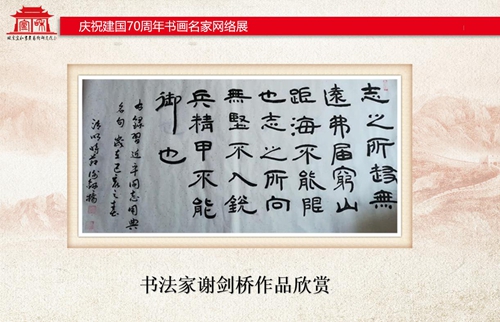 庆祝建国70周年书画名家网络展
志之所趍無
遠弗届窮山
距海不能限
也志之所向
無堅不入銳
兵精甲不能
御也
右錄習近平同志用典
名句 歲在己亥之春
书法家谢剑桥作品欣赏